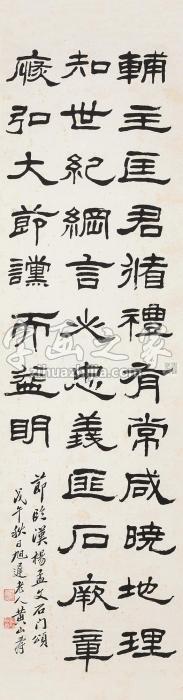 輔主匡君循禮有常咸曉地理
知世紀綱言必忠義匪石厥章
恢弘大節讜而益明
節臨漢楊孟文石門頌
戊午秋日旭遲老人黃山壽
字画之家